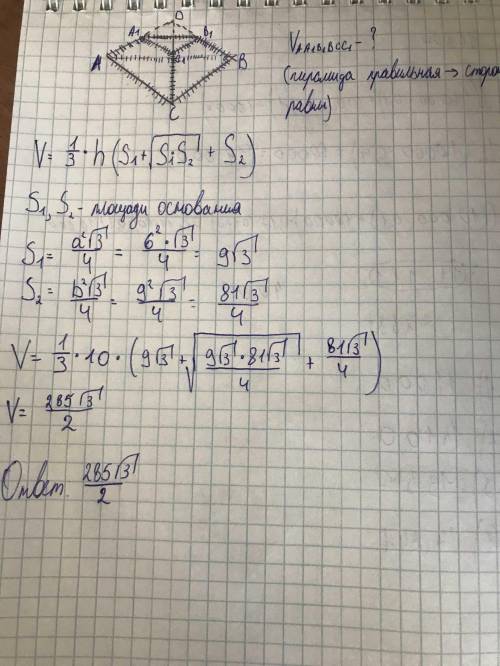 D
A₁ B₁
A C₁ B
C
V_AA₁B₁BCC₁ - ?
(пирамида правильная → сторо
равны)
V = 1/3 · h (S₁ + √(S₁S₂) + S₂)
S₁, S₂ - площади основания
S₁ = a²√3/4 = 6²·√3/4 = 9√3
S₂ = b²√3/4 = 9²√3/4 = 81√3/4
V = 1/3 · 10 · (9√3 + √(9√3·81√3/4) + 81√3/4)
V = 285√3/2
Ответ. 285√3/2